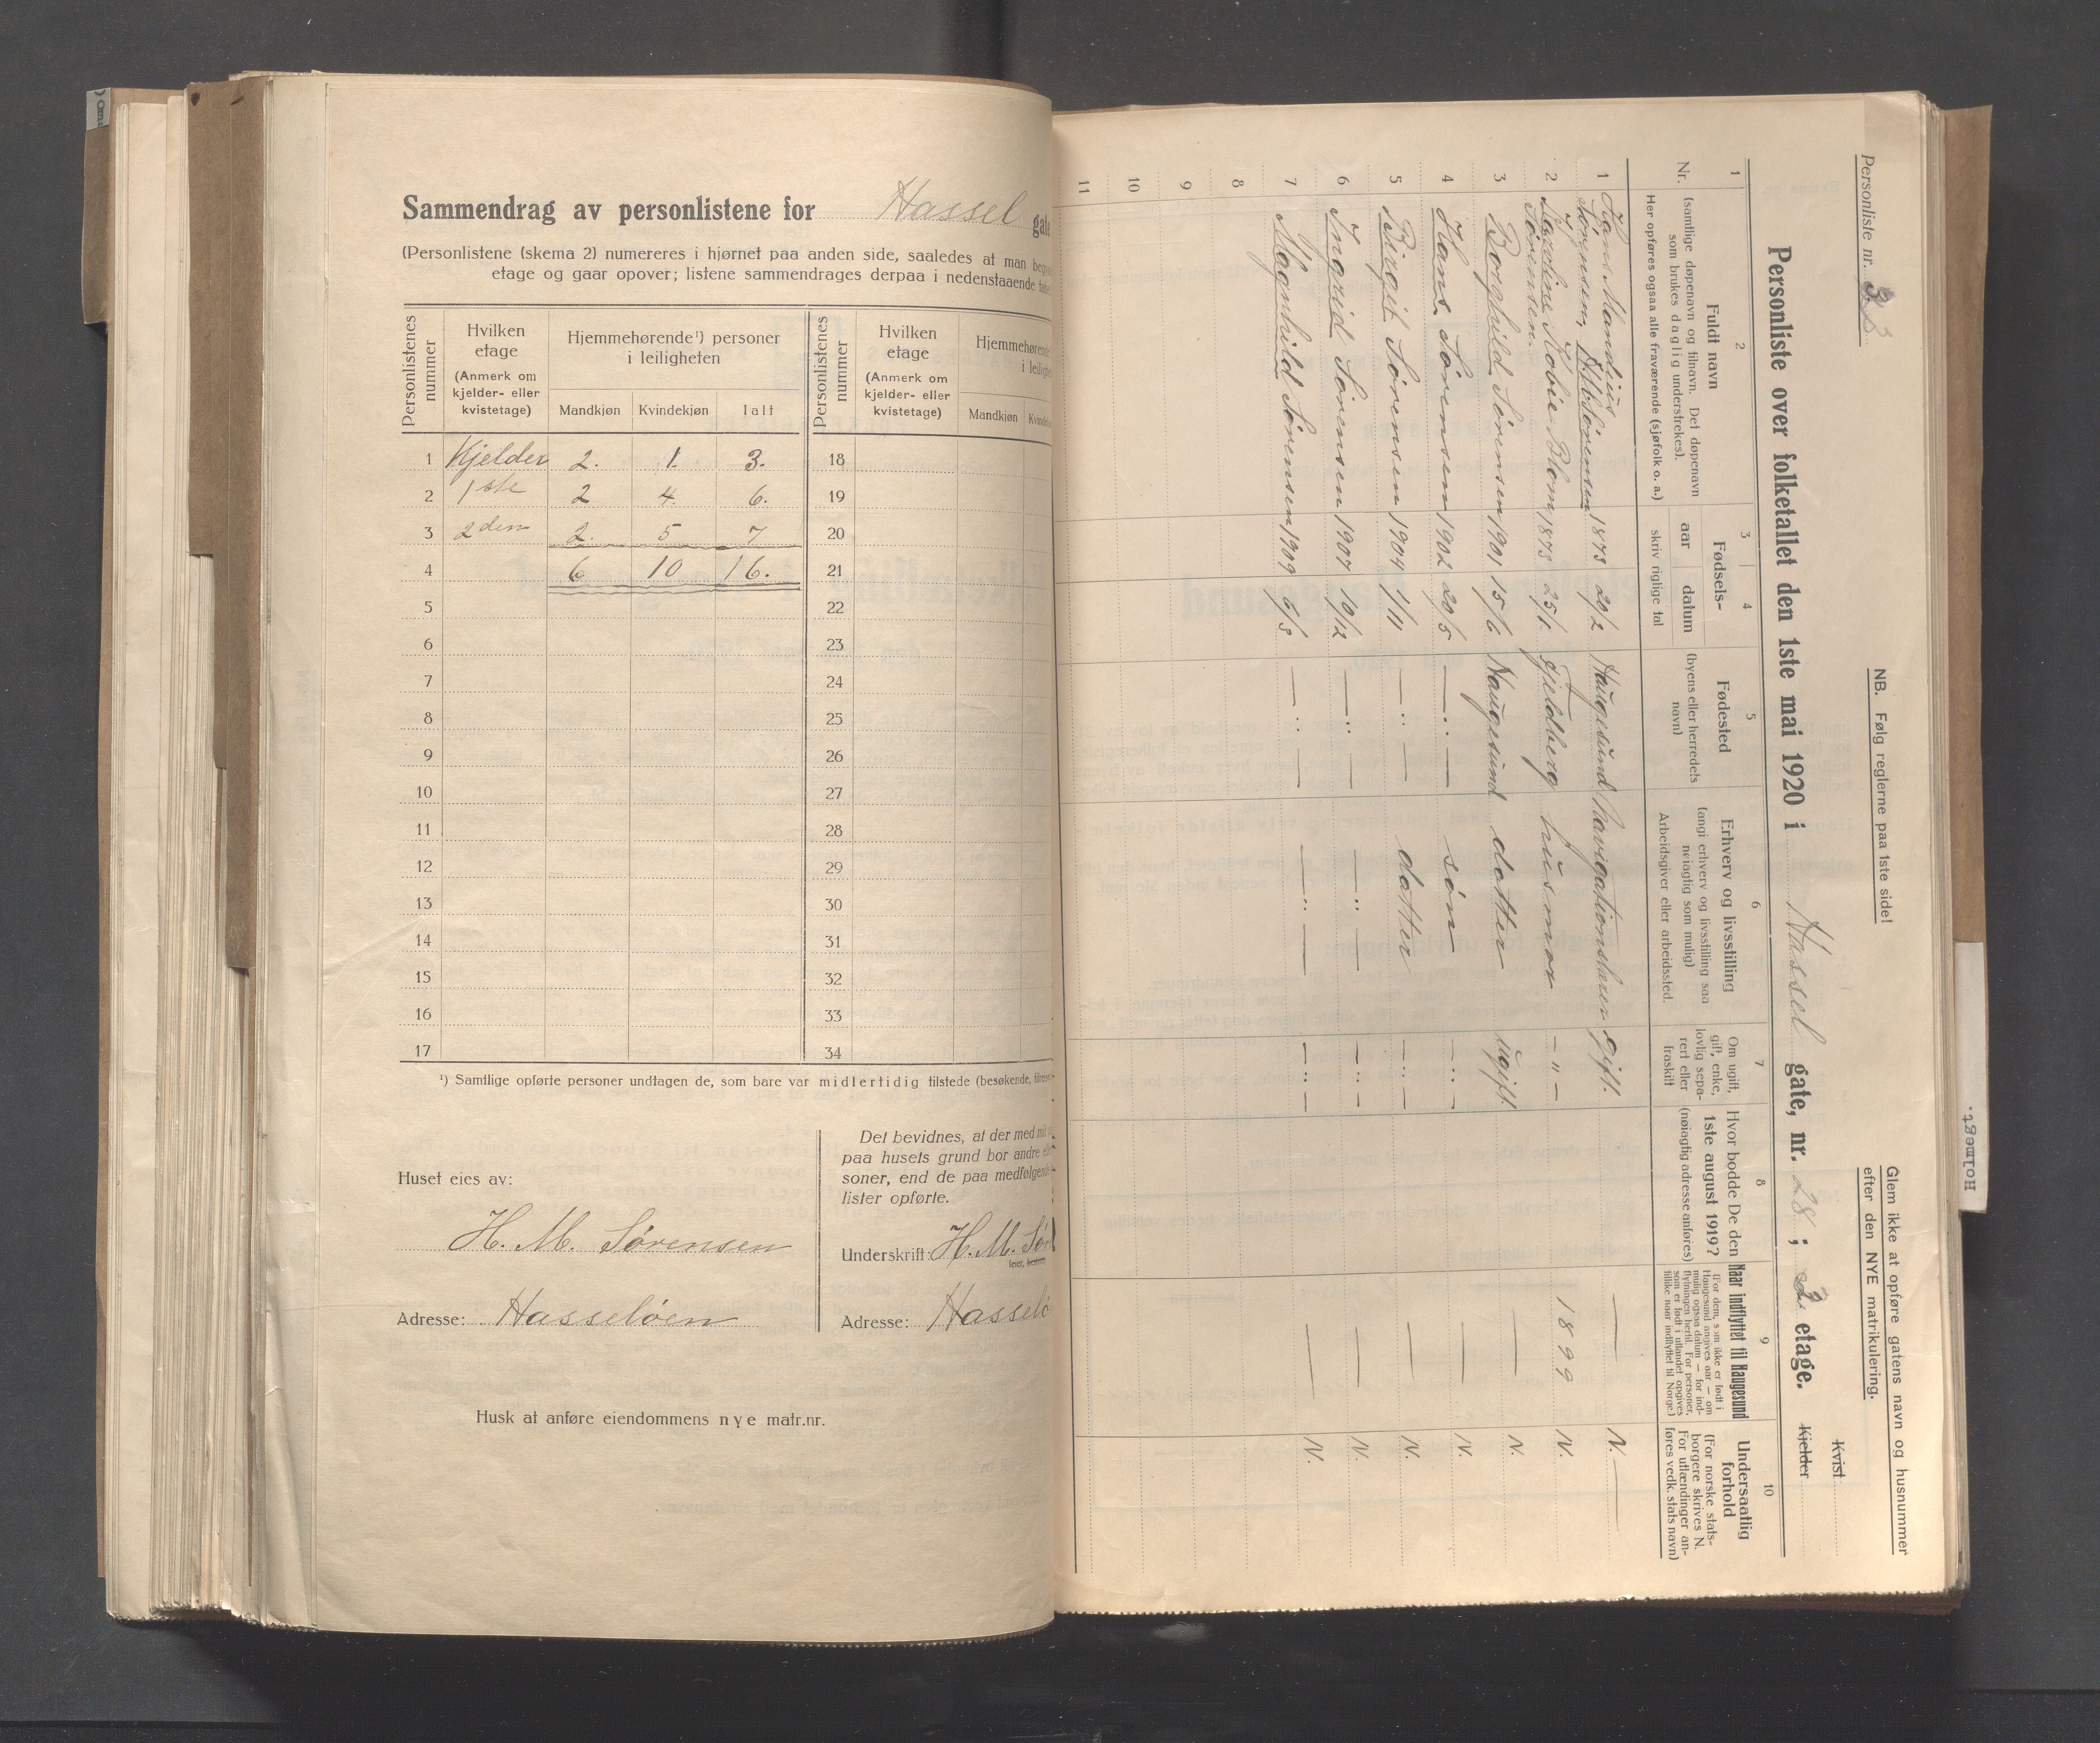 Sammendrag av personlistene for Hassel gate
(Personlistene (skema 2) numereres i hjørnet paa anden side, saaledes at man
etage og gaar opover; listene sammendrages derpaa i nedenstaaende
Personlistenes nummer | Hvilken etage (Anmerk om kjelder- eller kvistetage) | Hjemmehørende¹) personer i leiligheten | Personlistenes nummer | Hvilken etage (Anmerk om kjelder- eller kvistetage) | Hjemmehørende
Mandkjøn | Kvindekjøn | Ialt | Mandkjøn
1 Kjelder 2. 1. 3. 18
2 1ste 2 4. 6. 19
3 2den 2. 5 7 20
4 6 10 16. 21
5 22
6 23
7 24
8 25
9 26
10 27
11 28
12 29
13 30
14 31
15 32
16 33
17 34
¹) Samtlige opførte personer undtagen de, som bare var midlertidig tilstede (besøkende,
Huset eies av:
H. M. Sørensen
Adresse: Hasseløen
Det bevidnes, at der med
paa husets grund bor andre
soner, end de paa medfølgende
lister opførte.
Underskrift: H. M. Sør
Adresse: Hasselø
Husk at anføre eiendommens nye matr.nr.
Personliste nr. 3
NB. Følg reglerne paa 1ste side!
Glem ikke at opføre gatens navn og husnummer
efter den NYE matrikulering.
Kvist
Personliste over folketallet den 1ste mai 1920 i Hassel gate, nr. 28; 2 etage. Kjelder
1 | 2 | 3 | 4 | 5 | 6 | 7 | 8 | 9 | 10
Nr.
Fuldt navn
(samtlige døpenavn og tilnavn. Det døpenavn
som brukes daglig understrekes).
Her opføres ogsaa alle fraværende (sjøfolk o. a.)
Fødsels-
aar | datum
skriv rigtige tal
Fødested
(byens eller herredets
navn)
Erhverv og livsstilling
(angi erhverv og livsstilling saa
nøiagtig som mulig)
Arbeidsgiver eller arbeidssted.
Om ugift,
gift, enke,
lovlig sepa-
rert eller
fraskilt
Hvor bodde De den
1ste august 1919?
(nøiagtig adresse anføres)
Naar indflyttet til Haugesund
(For dem, som ikke er født i
Haugesund angives aar — om
mulig ogsaa datum — for ind-
flytningen hertil. For personer,
som er født i utlandet opgives
tillike naar indflyttet til Norge.)
Undersaatlig
forhold
(For norske stats-
borgere skrives N.
For utlændinger an-
føres vedk. stats navn)
1 Hans Mandius
Sørensen, 1873 20/2 Haugesund Navigationslærer gift. — N. —
2 Tobie Blom 1873 25/1 Fjeldberg husmor — " — 1899 N.
Sørensen.
3 Borghild Sørensen 1901 15/6 Haugesund datter ugift. — N.
4 Hans Sørensen 1902 20/5 — " — søn — " — — N.
5 Birgit Sørensen 1904 1/11 — " — datter — " — — N.
6 Ingrid Sørensen 1907 19/12 — " — — " — — " — — N.
7 Magnhild Sørensen 1909 6/3 — " — — " — — " — — N.
8
9
10
11
Holmegt.